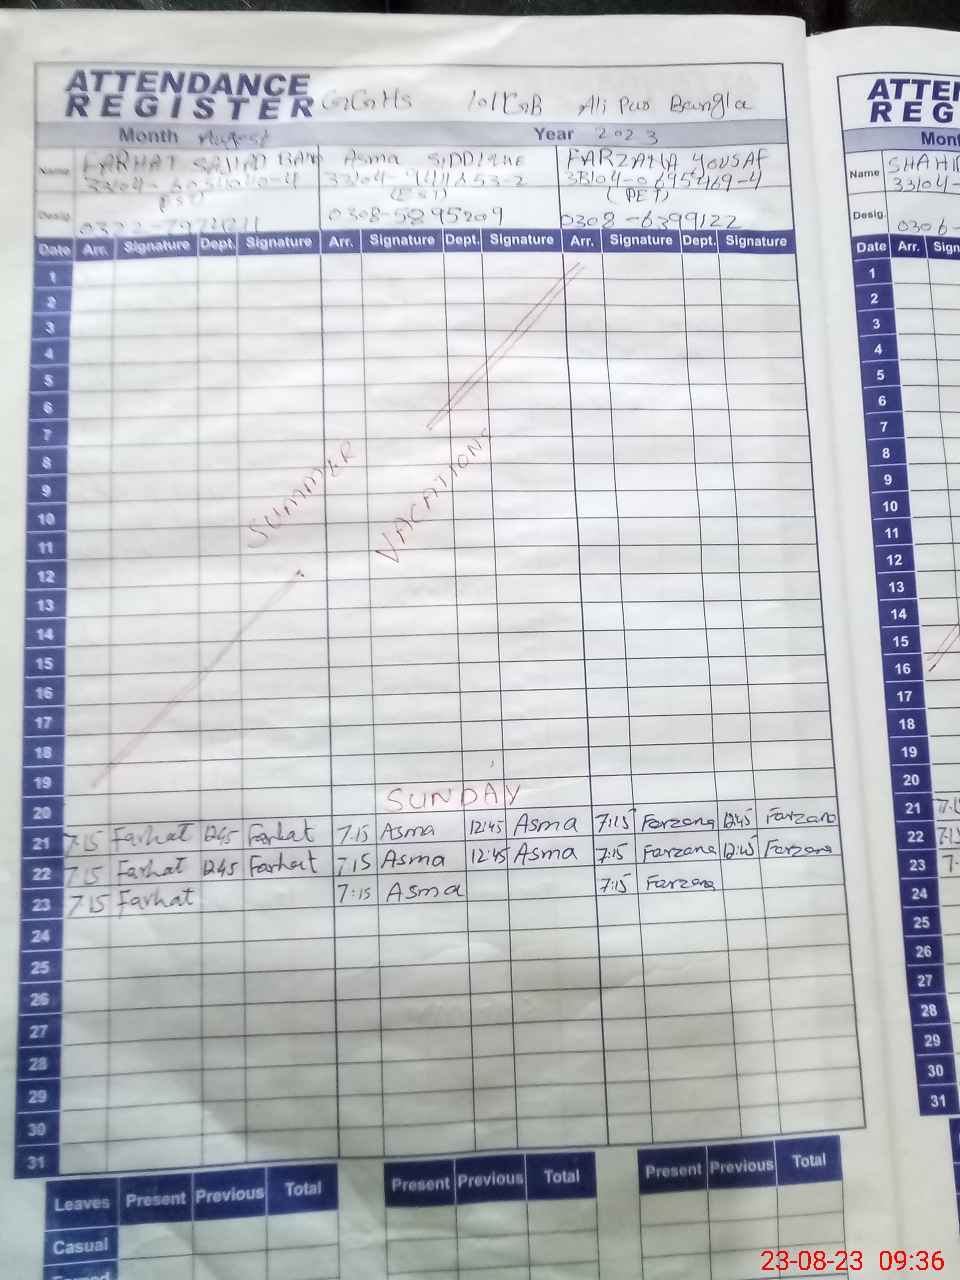 ATTENDANCE
REGISTER GGHS 101 GB Ali Pur Bangla
Month August Year 2023
Name FARHAT SAJJAD Asma SIDDIQUE FARZANA YOUSAF
33104-
33104-0695469-4
Desig. PST (EST) (PET)
0308-5895209 0308-6399122
Date Arr. Signature Dept. Signature Arr. Signature Dept. Signature Arr. Signature Dept. Signature
1
2
3
4
5
6
7
8
9
10
11
12
13
14
15
16
17
18
19
SUMMER VACATIONS
20 SUNDAY
21 7:15 Farhat 12:45 Farhat 7:15 Asma 12:45 Asma 7:15 Farzana 12:45 Farzana
22 7:15 Farhat 12:45 Farhat 7:15 Asma 12:45 Asma 7:15 Farzana 12:45 Farzana
23 7:15 Farhat 7:15 Asma 7:15 Farzana
24
25
26
27
28
29
30
31
Leaves Present Previous Total Present Previous Total Present Previous Total
Casual
ATTEN
REG
Mont
Name SHAHID
33104-
Desig.
0306-
Date Arr. Sign
1
2
3
4
5
6
7
8
9
10
11
12
13
14
15
16
17
18
19
20
21
22
23
24
25
26
27
28
29
30
31
23-08-23 09:36